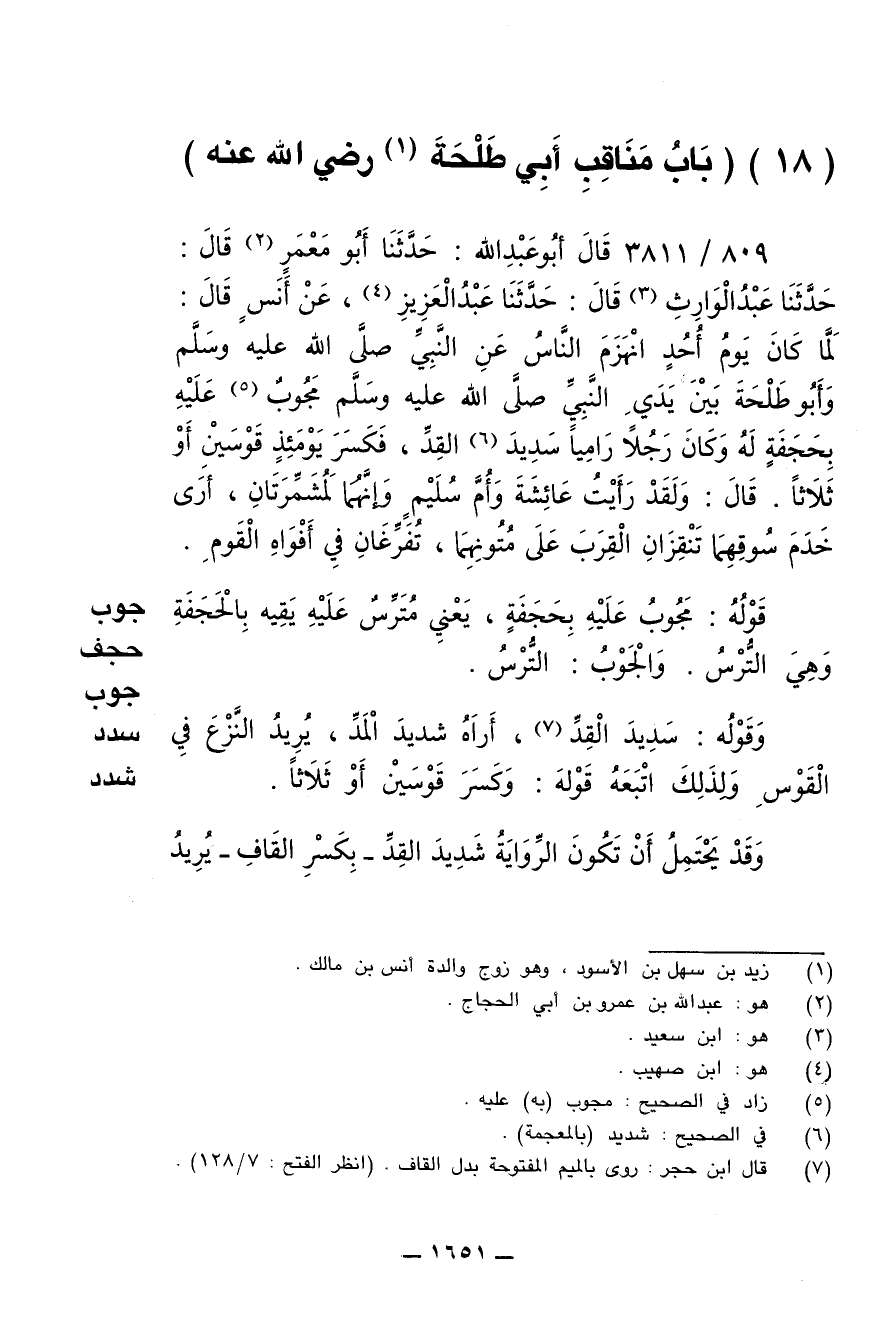 ( ١٨ ) ( بَابُ مَنَاقِبِ أَبِي طَلْحَةَ (١) رضي الله عنه )
٨٠٩ / ٣٨١١ قَالَ أبُوعَبْدِالله : حَدَّثَنَا أَبُو مَعْمَرٍ (٢) قَالَ :
حَدَّثَنَا عَبْدُالْوَارِثِ (٣) قَالَ : حَدَّثَنَا عَبْدُالْعَزِيزِ (٤) ، عَنْ أَنَسٍ قَالَ :
لَمَّا كَانَ يَومُ أُحُدٍ انْهَزَمَ النَّاسُ عَنِ النَّبِيِّ صلَّى الله عليه وسَلَّم
وَأَبُو طَلْحَةَ بَيْنَ يَدَيِ النَّبِيِّ صلَّى الله عليه وسَلَّم مَجُوبٌ (٥) عَلَيْهِ
بِحَجَفَةٍ لَهُ وَكَانَ رَجُلًا رَامِياً سَدِيدَ (٦) القِدِّ ، فَكَسَرَ يَوْمَئِذٍ قَوْسَيْنِ أَوْ
ثَلَاثاً . قَالَ : وَلَقَدْ رَأَيْتُ عَائِشَةَ وَأُمَّ سُلَيْمٍ وَإنَّهُمَا لَمُشَمِّرَتَانِ ، أرَى
خَدَمَ سُوقِهِمَا تَنْقِزَانِ الْقِرَبَ عَلَى مُتُونِهِمَا ، تُفَرِّغَانِ فِي أَفْوَاهِ الْقَومِ .
قَوْلُهُ : مَجُوبُ عَلَيْهِ بِحَجَفَةٍ ، يَعْنِي مُتَرِّسُ عَلَيْهِ يَقِيه بِالْحَجَفَةِ
وَهِيَ التُّرْسُ . وَالْجَوْبُ : التُّرْسُ .
جوب
حجف
جوب
وَقَوْلُه : سَدِيدَ الْقِدِّ (٧) ، أَراَهُ شديدَ الْمَدِّ ، يُرِيدُ النَّزْعَ فِي
الْقَوْسِ وَلِذَلِكَ اتْبَعَهُ قَوْلهَ : وَكَسَرَ قَوْسَيْنْ أَوْ ثَلَاثاً .
سدد
شدد
وَقَدْ يَحْتَمِلُ أَنْ تَكُونَ الرِّوَايَةُ شَدِيدَ القِدِّ ـ بِكَسْرِ القَافِ ـ يُرِيدُ
(١) زيد بن سهل بن الأسود ، وهو زوج والدة أنس بن مالك .
(٢) هو : عبدالله بن عمرو بن أبي الحجاج .
(٣) هو : ابن سعيد .
(٤) هو : ابن صهيب .
(٥) زاد في الصحيح : مجوب (به) عليه .
(٦) في الصحيح : شديد (بالمعجمة) .
(٧) قال ابن حجر : روى بالميم المفتوحة بدل القاف . (انظر الفتح : ١٢٨/٧) .
ـ ١٦٥١ ـ